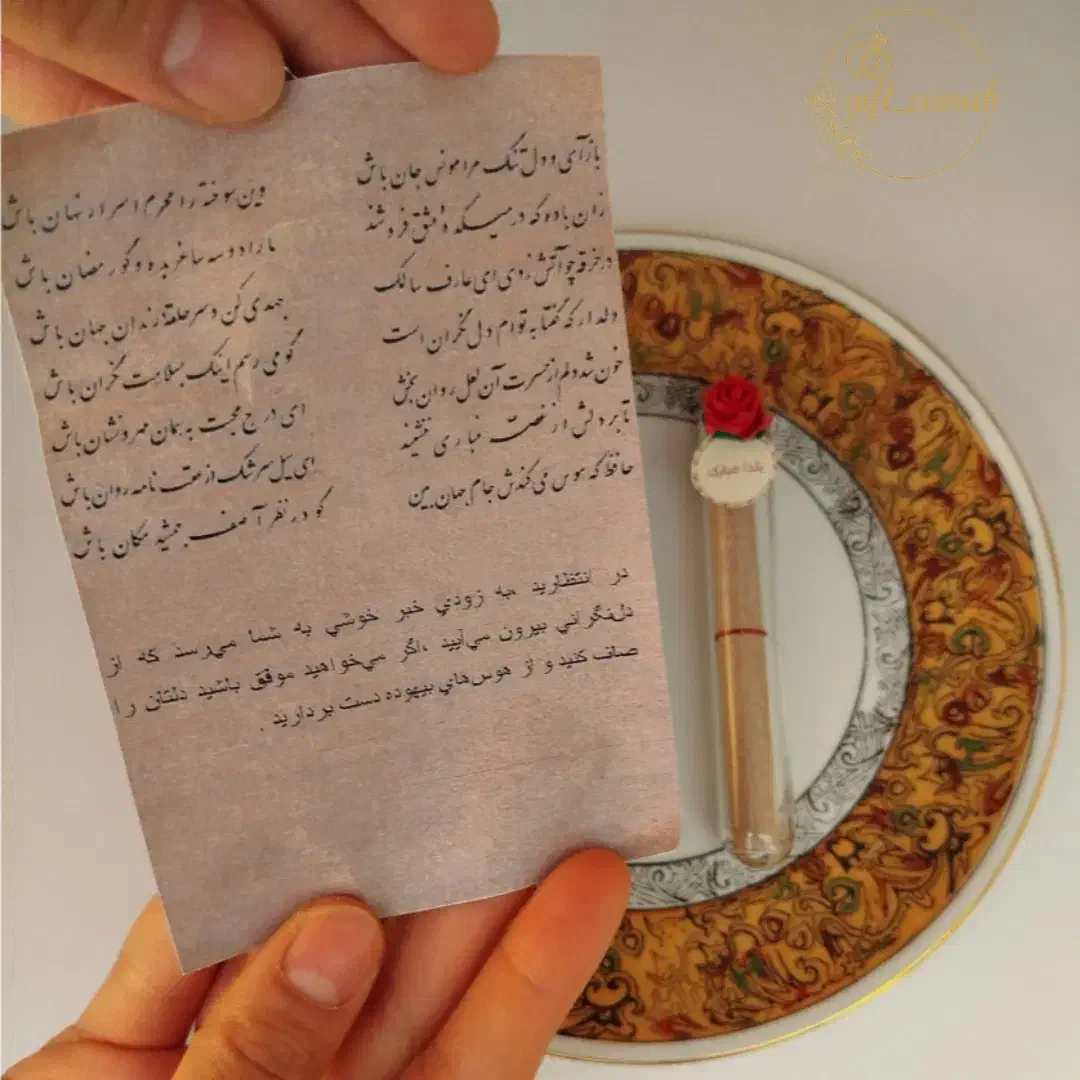 gift_zeinab
باز آی و دل تنگ مرا مونس جان باش وین سوخته را محرم اسرار نهان باش
زان باده که در میکدهٔ عشق فروشند ما را دو سه ساغر بده و گو رمضان باش
در خرقه چو آتش زدی ای عارف سالک جهدی کن و سرحلقهٔ رندان جهان باش
دلدار که گفتا به توام دل نگران است گو می رسم اینک بسلامت نگران باش
خون شد دلم از حسرت آن لعل روان بخش ای درج محبت به همان مهر و نشان باش
تا بر دلش از غصه غباری ننشیند ای سیل سرشک از عقب نامه روان باش
حافظ که هوس می کندش جام جهان بین گو در نظر آصف جمشید مکان باش
در انتظاريد ،به زودي خبر خوشي به شما مي‌رسد كه از
دل‌نگراني بيرون مي‌آييد ،اگر مي‌خواهيد موفق باشيد دلتان را
صاف كنيد و از هوس‌هاي بيهوده دست برداريد .
یلدا مبارک